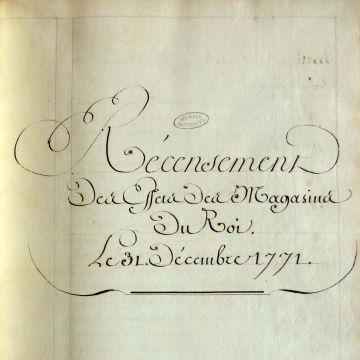 Récensement
Des Effets des Magasins
Du Roi.
Le 31. Décembre 1771.